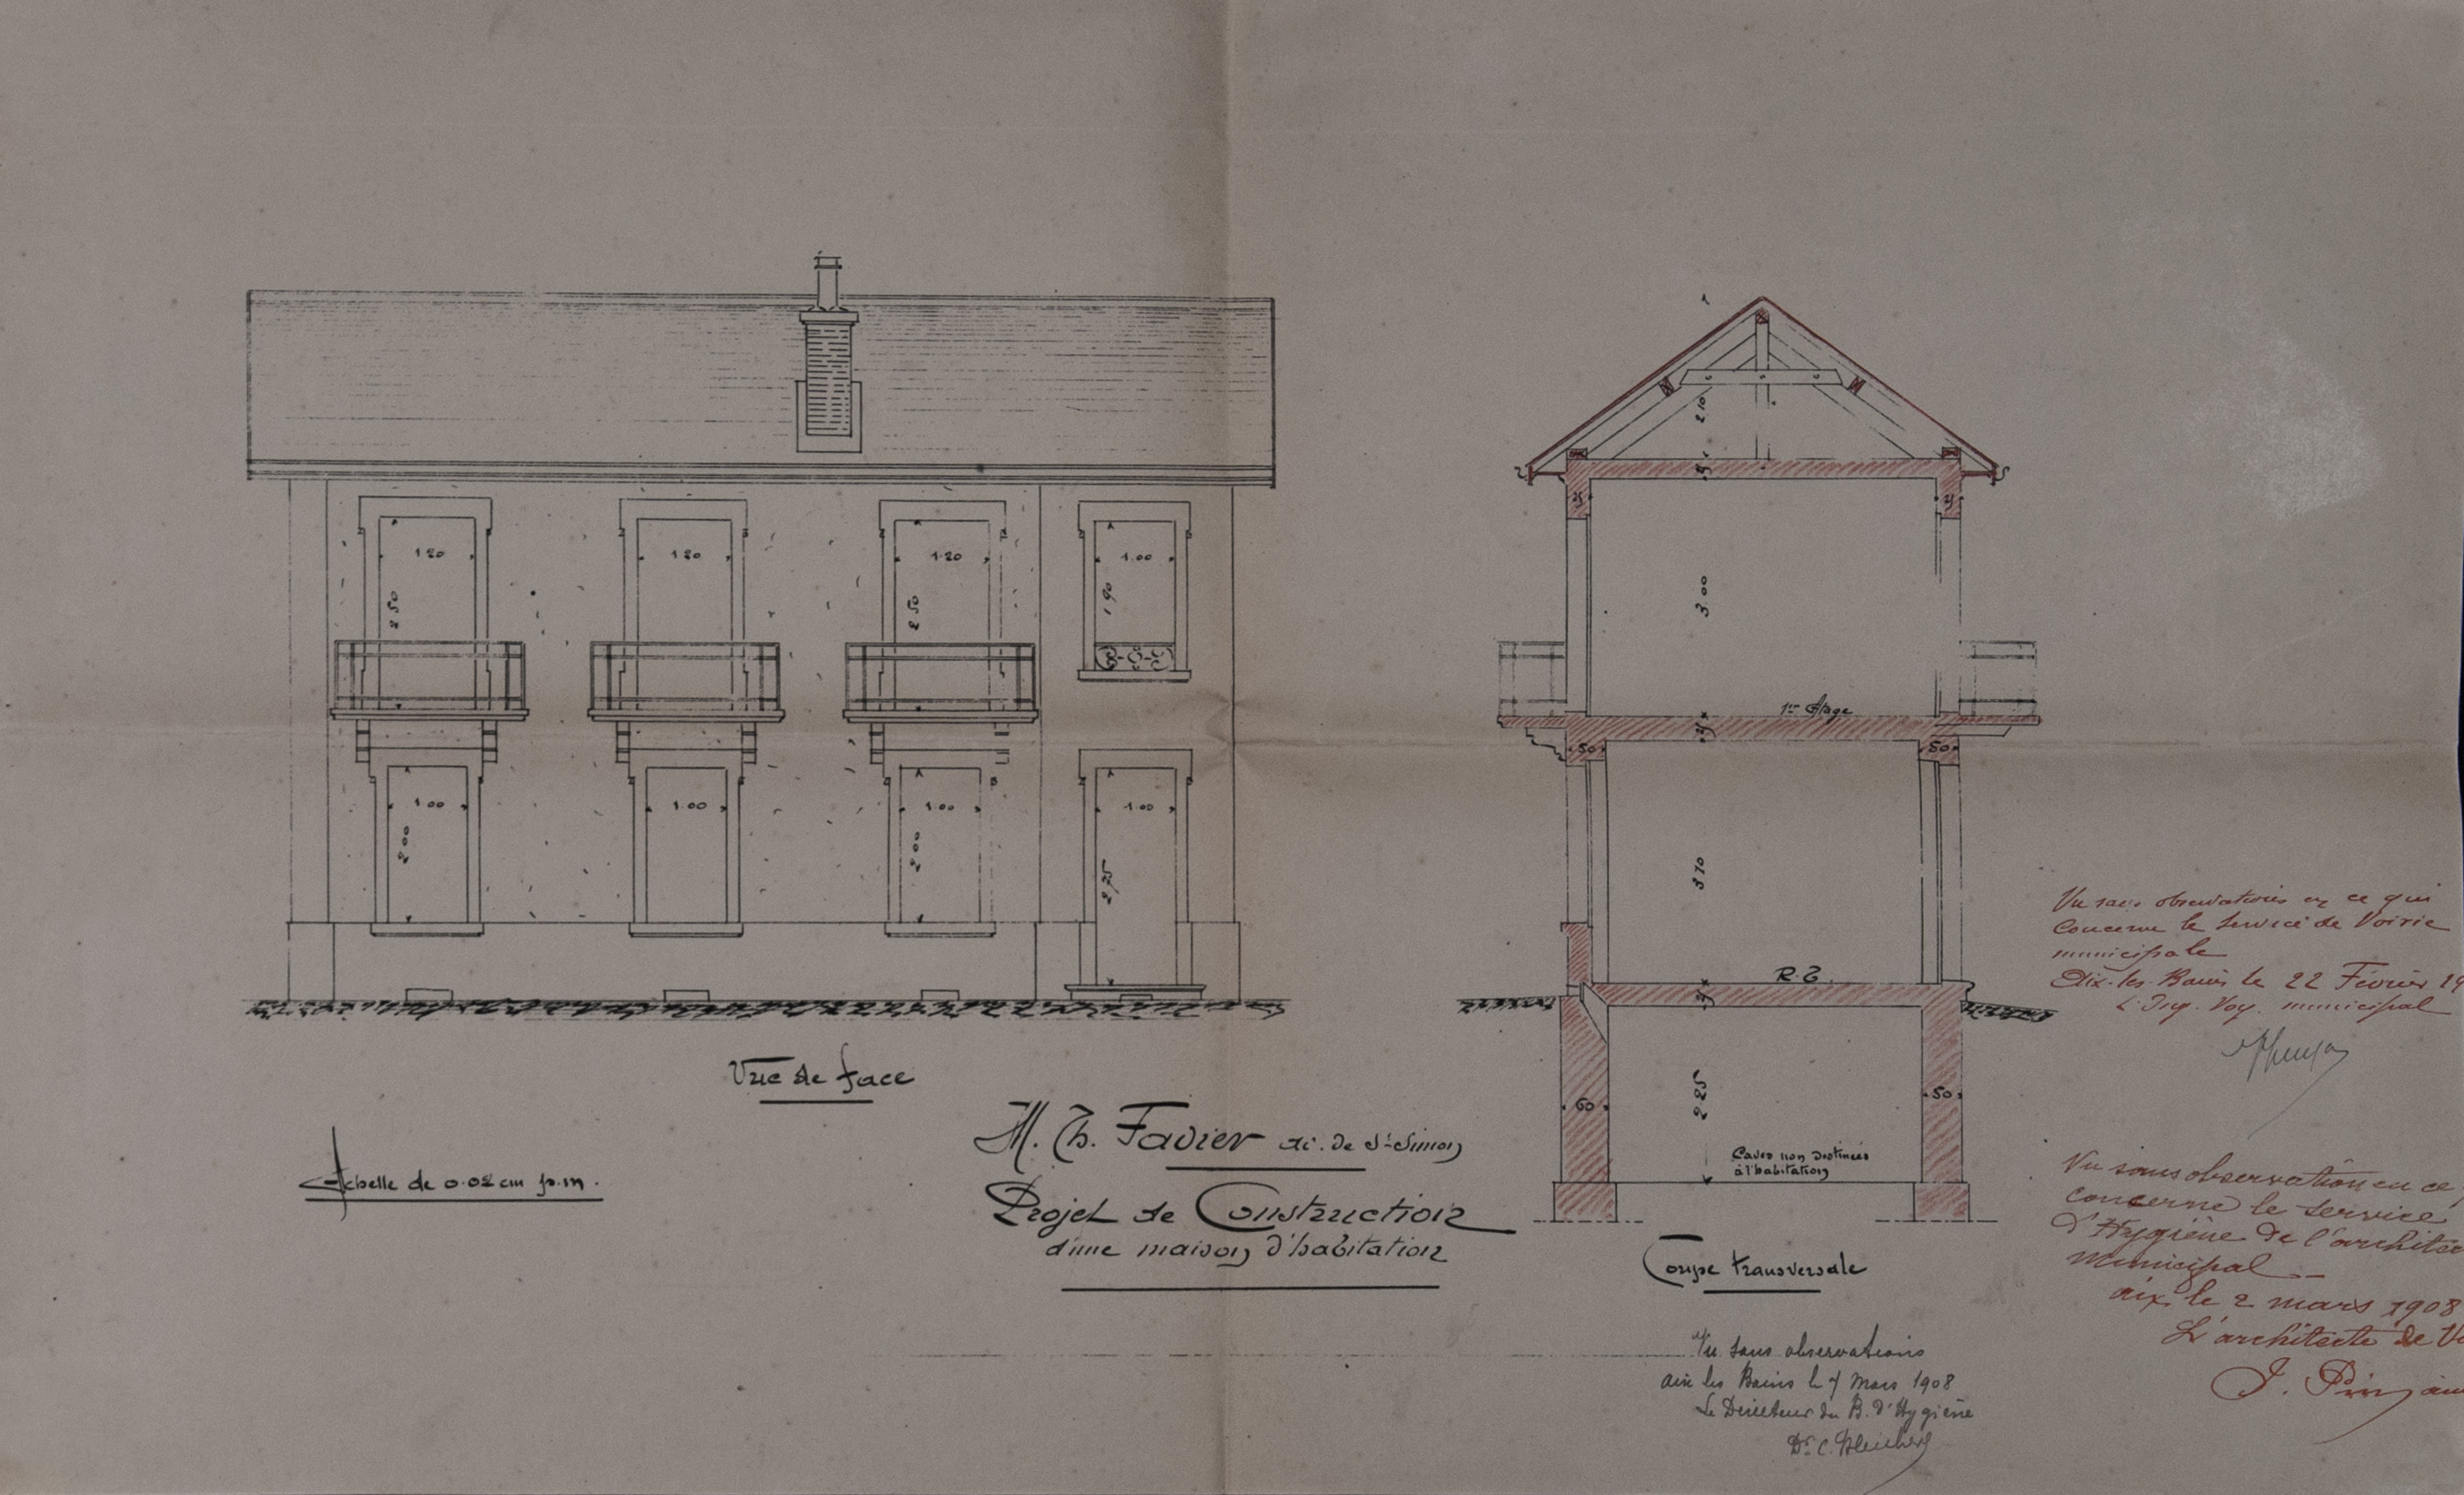 1 20
1 20
1.20
1.00
2 50
2 50
1 90
1 00
1.00
1.00
1.00
2 00
2 00
2,25
Vue de face
Echelle de 0.02 cm p.m.
M. Th. Favier av. de St Simon
Projet de Construction
d'une maison d'habitation
2 10
25
3 00
1er Etage
50
50
3 10
R.C.
60
2 25
50
Caves non destinées
à l'habitation
Coupe transversale
Vu sans observations
aix les Bains le 7 Mars 1908
Le Directeur du B. d'Hygiène
Dr. C.
Vu sans observations en ce qui
Concerne le Service de Voirie
municipale
Aix-les-Bains le 22 Février 19
L'Ing. Voy. municipal
Vu sans observation en ce
concerne le service
d'Hygiène de l'architec
Municipal
aix le 2 mars 1908
L'architecte de V
J.